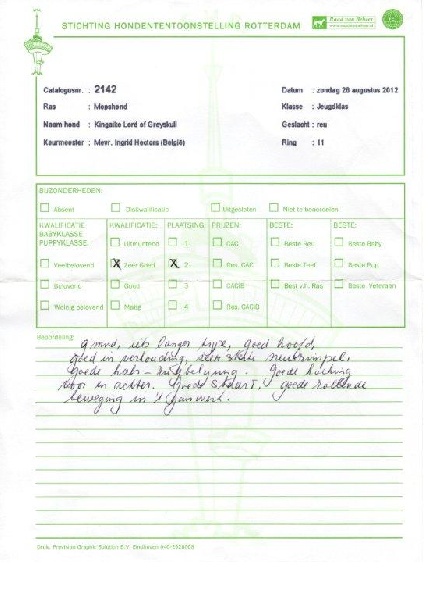 STICHTING HONDENTENTOONSTELLING ROTTERDAM
Catalogusnr. : 2142
Datum : zondag 28 augustus 2012
Ras : Mopshond
Klasse : Jeugdklas
Naam hond : Kingsite Lord of Greyskull
Geslacht : reu
Keurmeester : Mevr. Ingrid Hectors (België)
Ring : 11
BIJZONDERHEDEN:
Absent Diskwalificatie Uitgesloten Niet te beoordelen
KWALIFICATIE BABYKLASSE PUPPYKLASSE: KWALIFICATIE: PLAATSING: PRIJZEN: BESTE: BESTE:
Uitmuntend 1 CAC Beste Reu Beste Baby
Veelbelovend X Zeer Goed X 2 Res. CAC Beste Teef Beste Pup
Belovend Goed 3 CACIB Best v.h. Ras Beste Veteraan
Weinig belovend Matig 4 Res. CACIB
Beoordeling:
iets langer type, goed hoofd,
goed in verhouding, neusrimpel.
Goede hals - Goede hoeking
voor en achter. Goede staart, goede rollende
beweging in 't gangwerk.